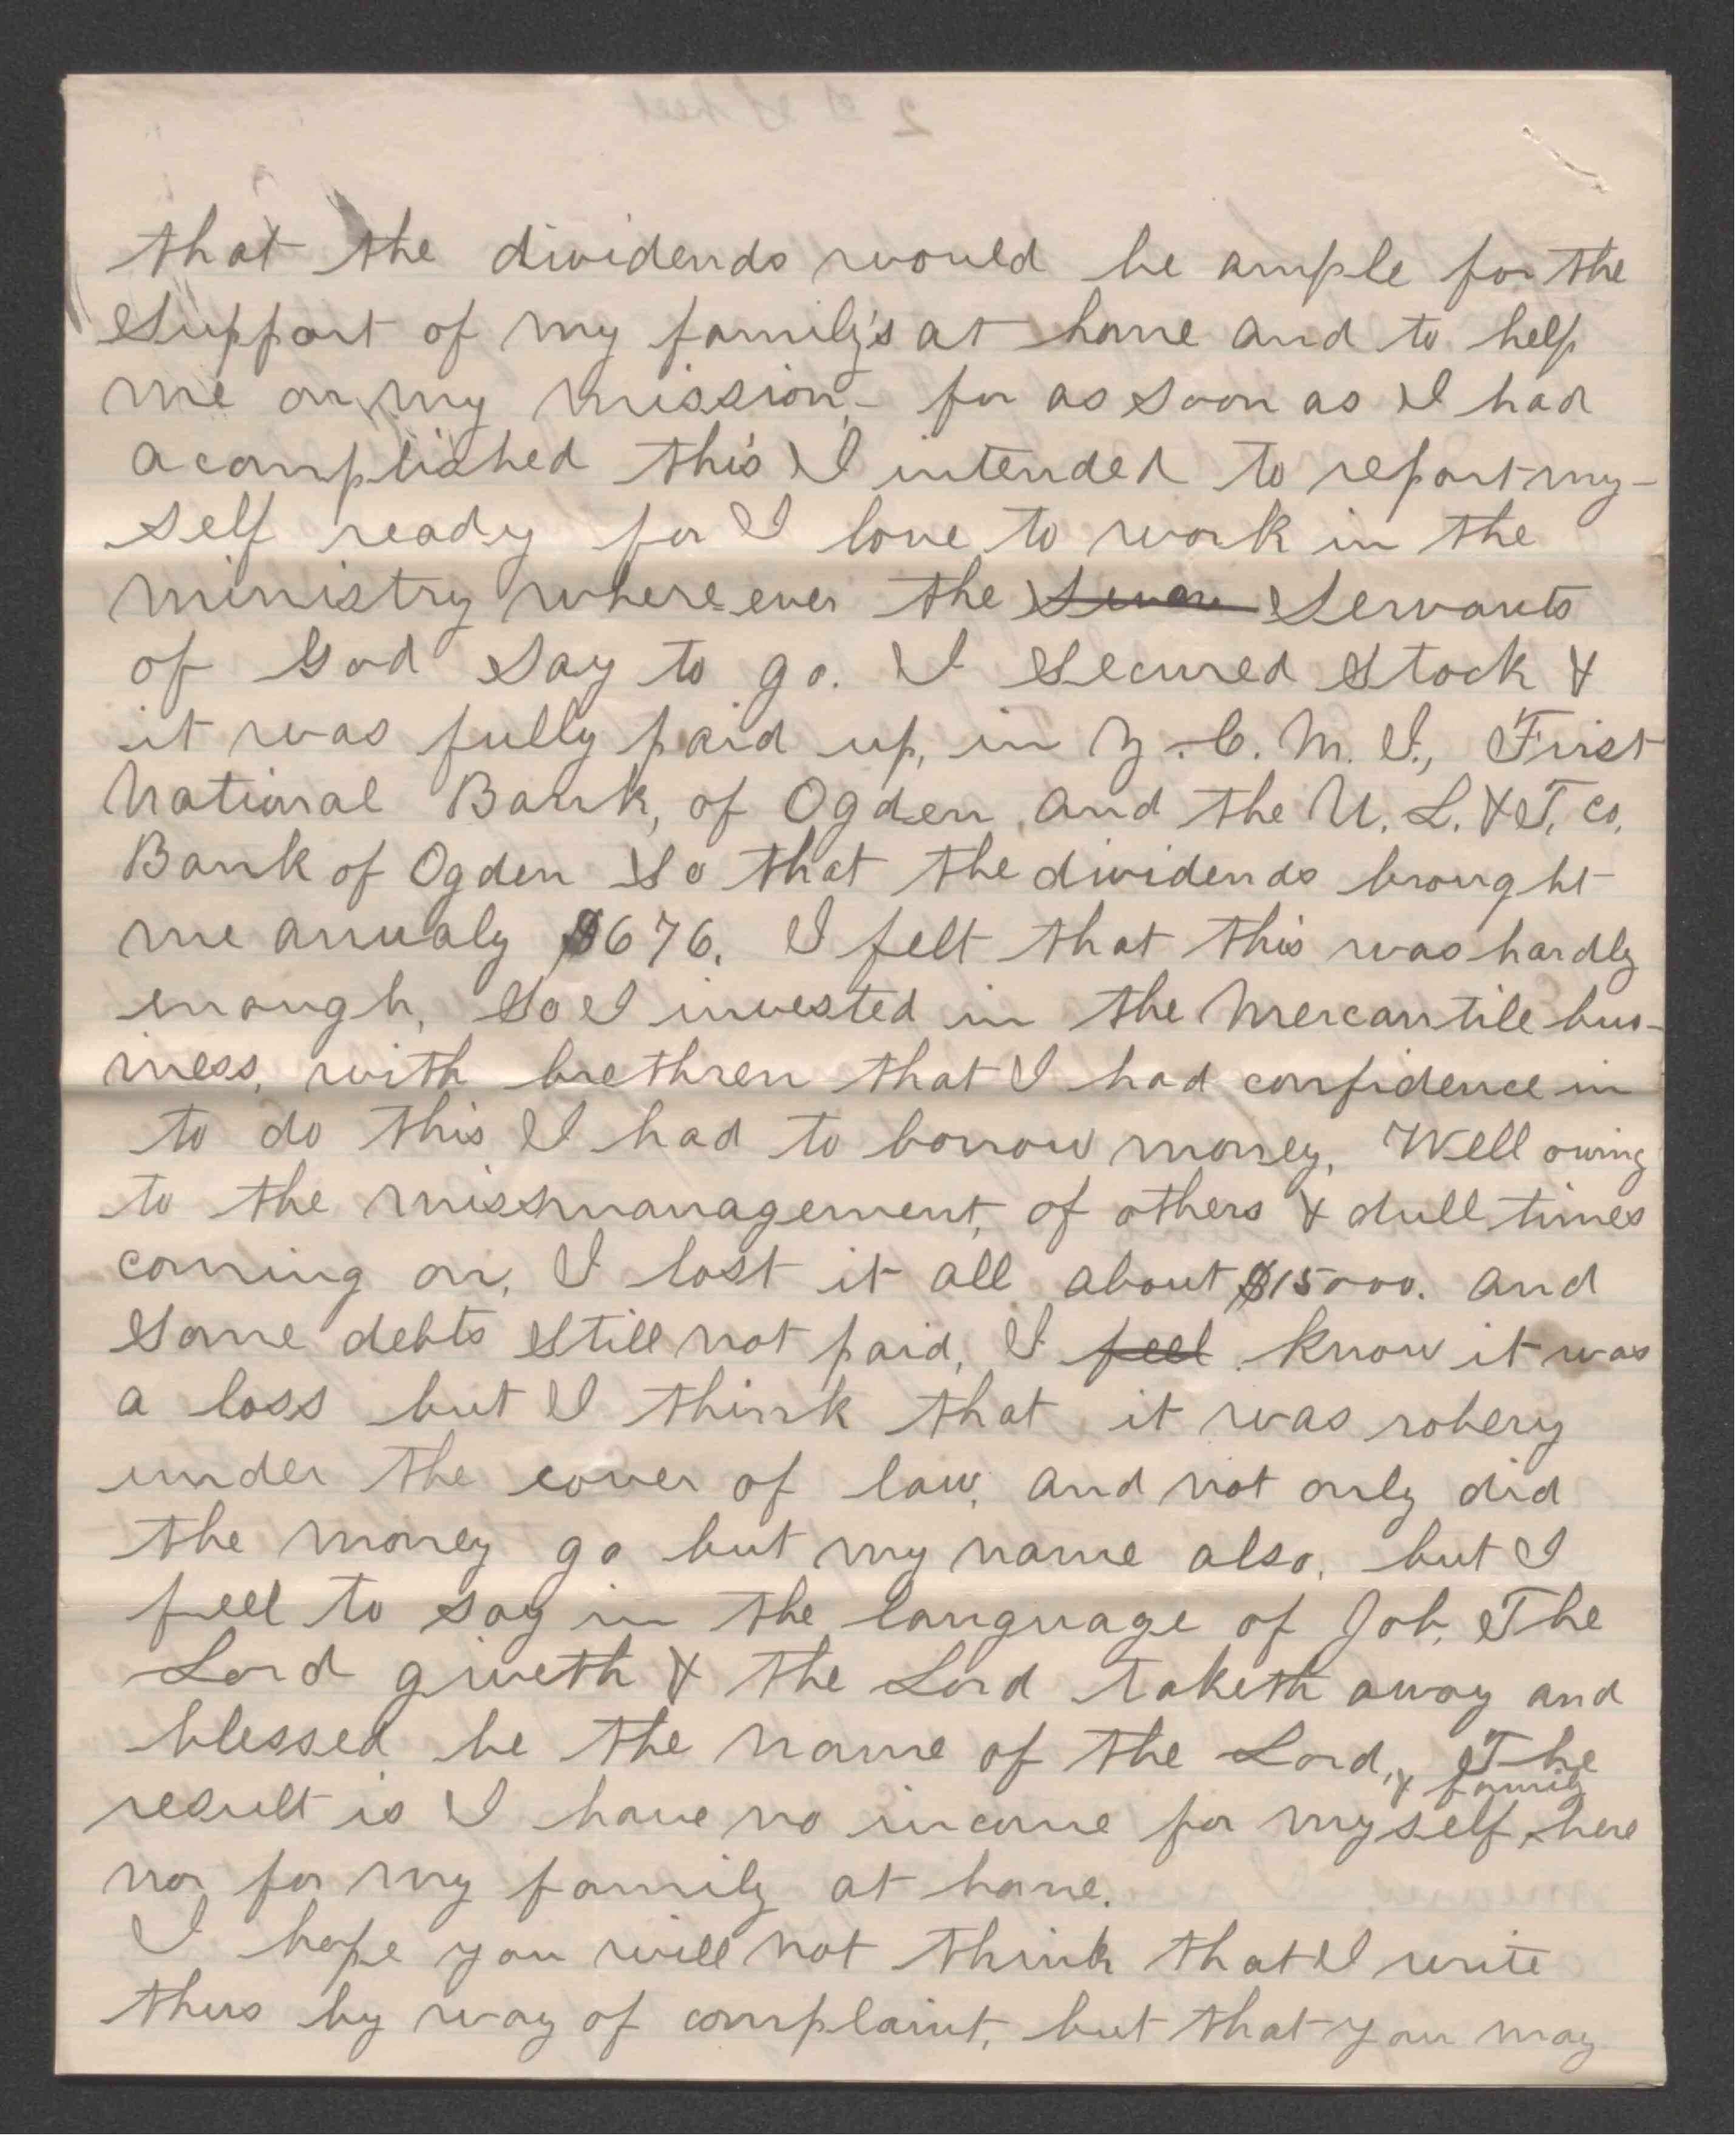 that the dividends would be ample for the
support of my family's at home and to help
me on my mission,- for as soon as I had
acomplished this I intended to report my-
self ready for I love to work in the
ministry where-ever the Servants
of God say to go. I secured stock &
it was fully paid up, in Z. C. M. I., First
National Bank, of Ogden, and the U. L. & T. Co.
Bank of Ogden so that the dividends brought
me anualy $676. I felt that this was hardly
enough, so I invested in the Mercantile bus-
iness, with brethren that I had confidence in
to do this I had to borrow money, Well owing
to the missmanagement, of others & dull times
coming on, I lost it all about $15000. and
some debts still not paid, I feel know it was
a loss but I think that it was robery
under the cover of law, and not only did
the money go but my name also, but I
feel to say in the language of Job, The
Lord giveth & the Lord taketh away and
blessed be the name of the Lord, The
& family
result is I have no income for myself, here
nor for my family at home.
I hope you will not think that I write
thus by way of complaint, but that you may